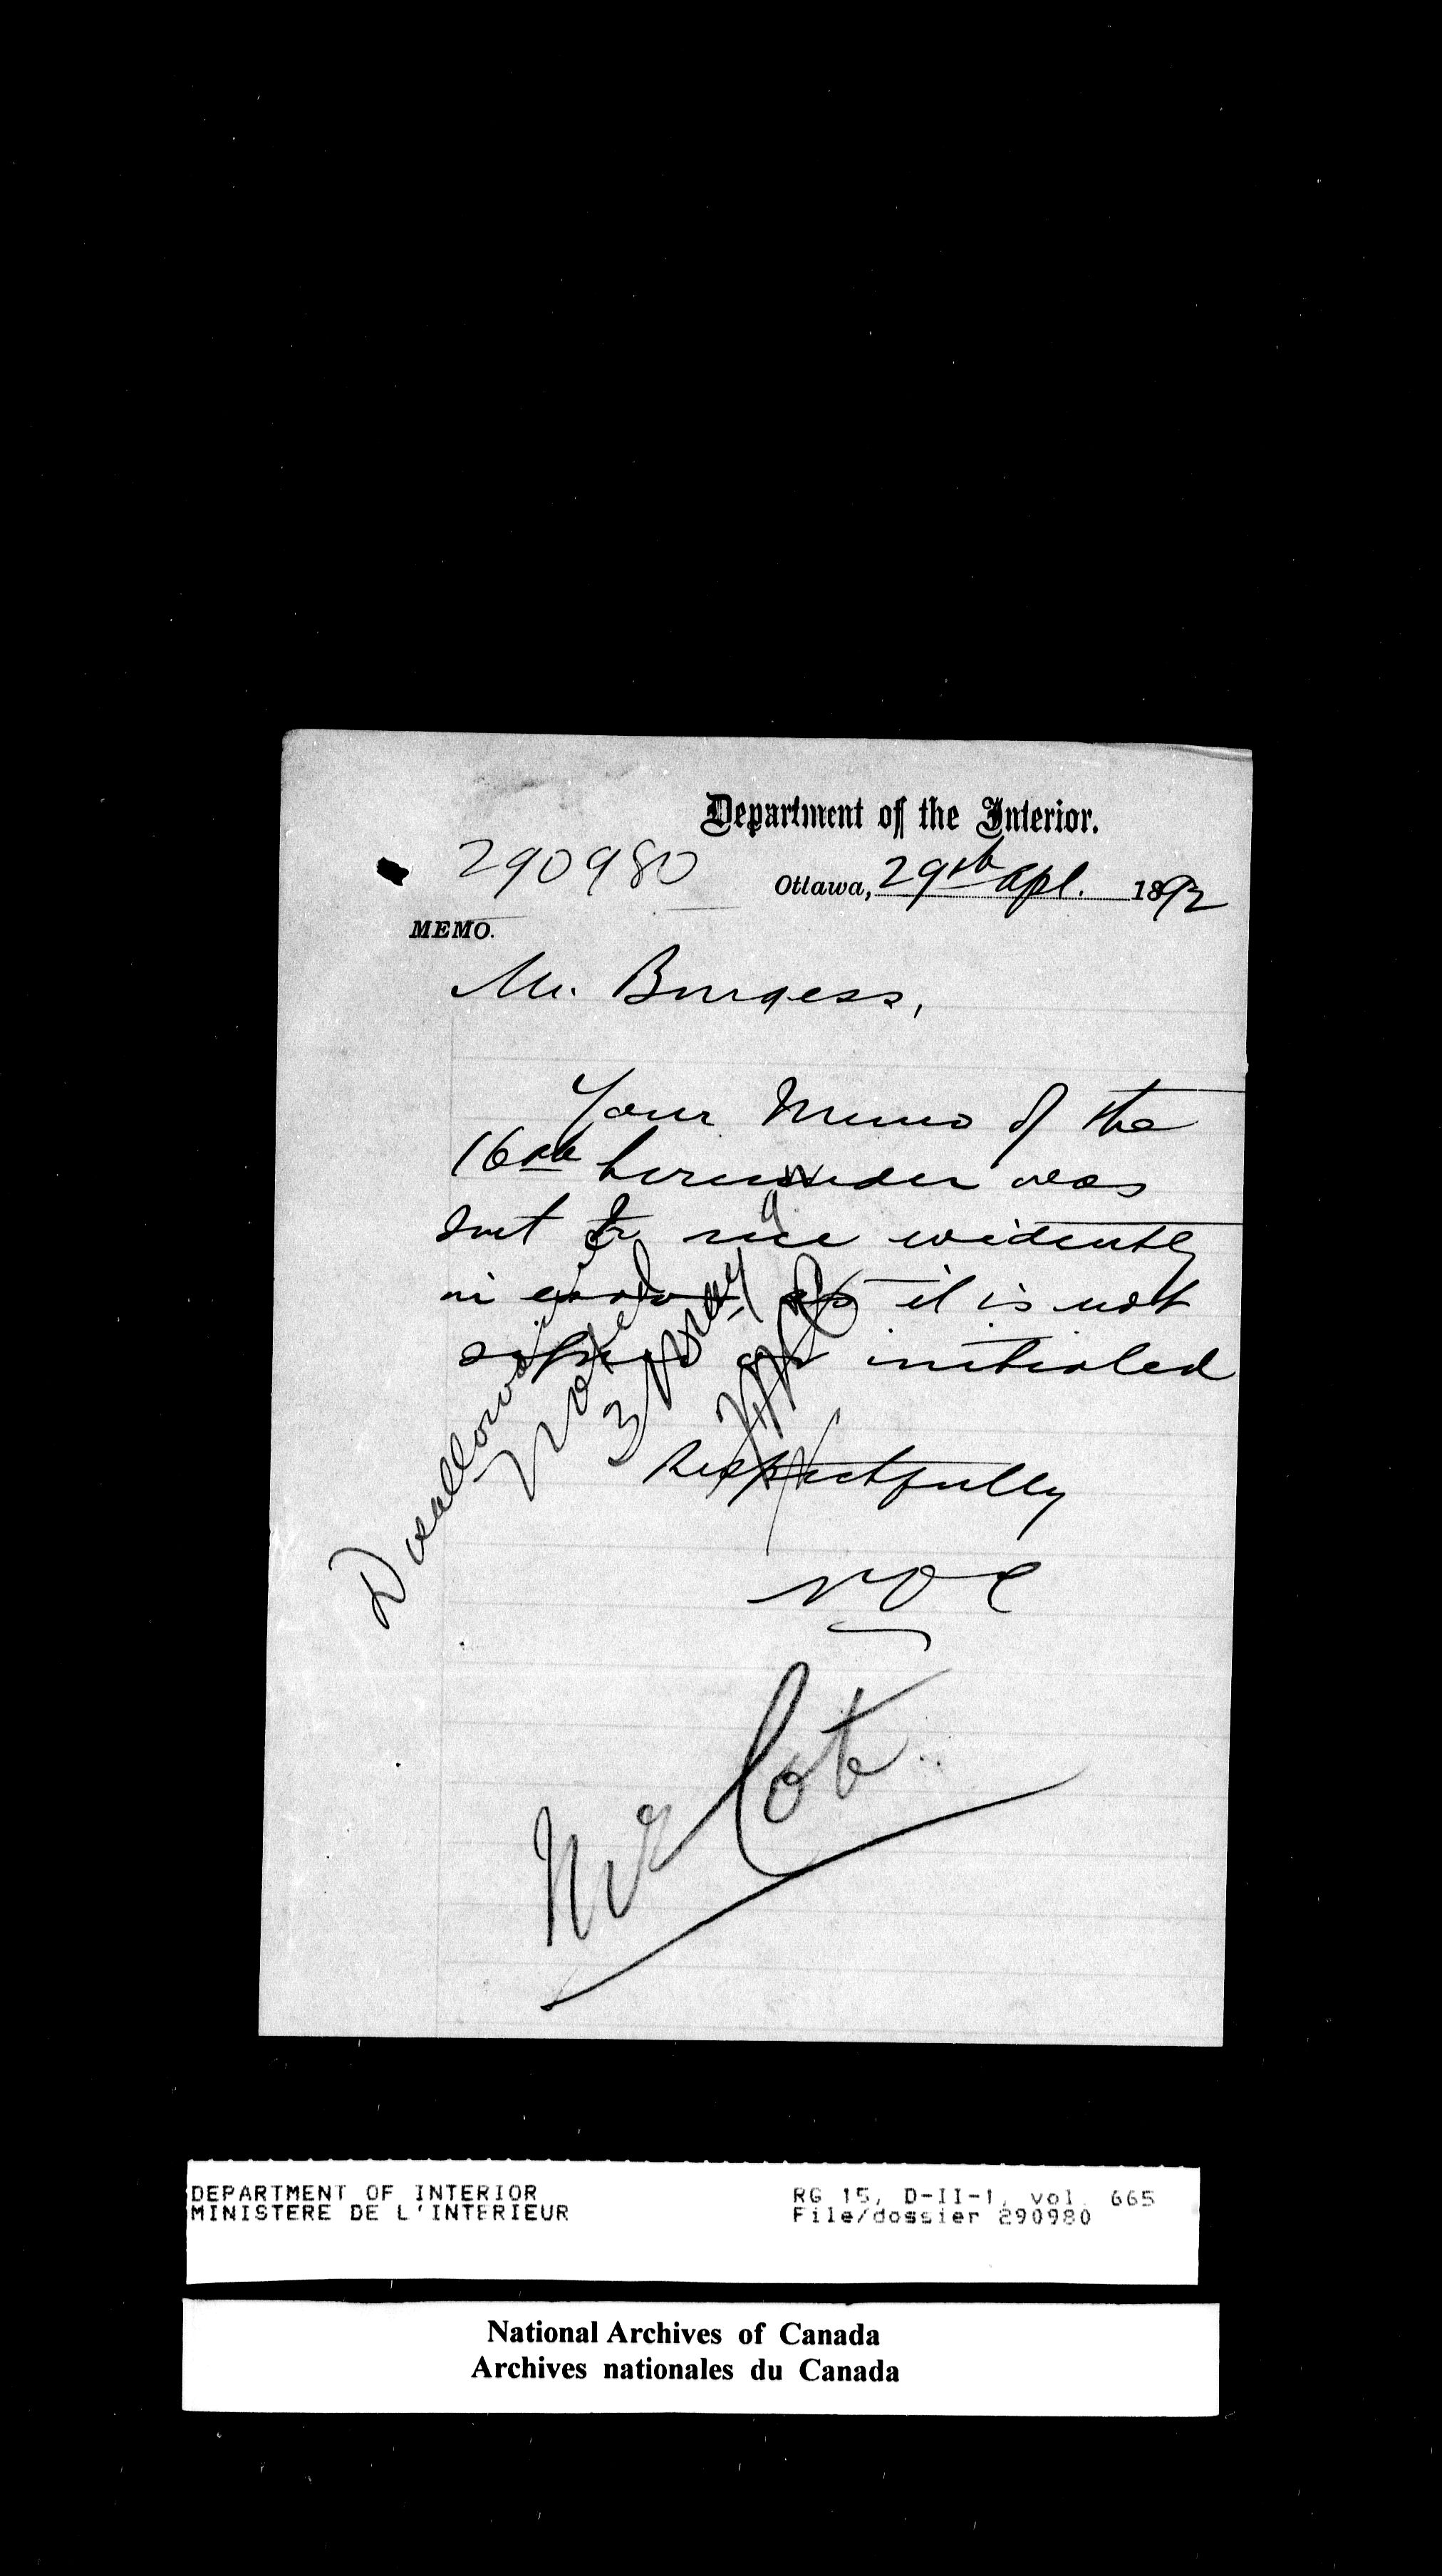 Department of the Interior.
290980
Ottawa, 29th Apl. 1892
MEMO.
Mr. Burgess,
Your Memo of the
16th hereunder was
sent to me evidently
in error, as it is not
signed or initialed
Respectfully
Disallowance
Noted
3 May
Mr Cote
DEPARTMENT OF INTERIOR
MINISTERE DE L'INTERIEUR
RG 15, D-II-1, vol. 665
File/dossier 290980
National Archives of Canada
Archives nationales du Canada